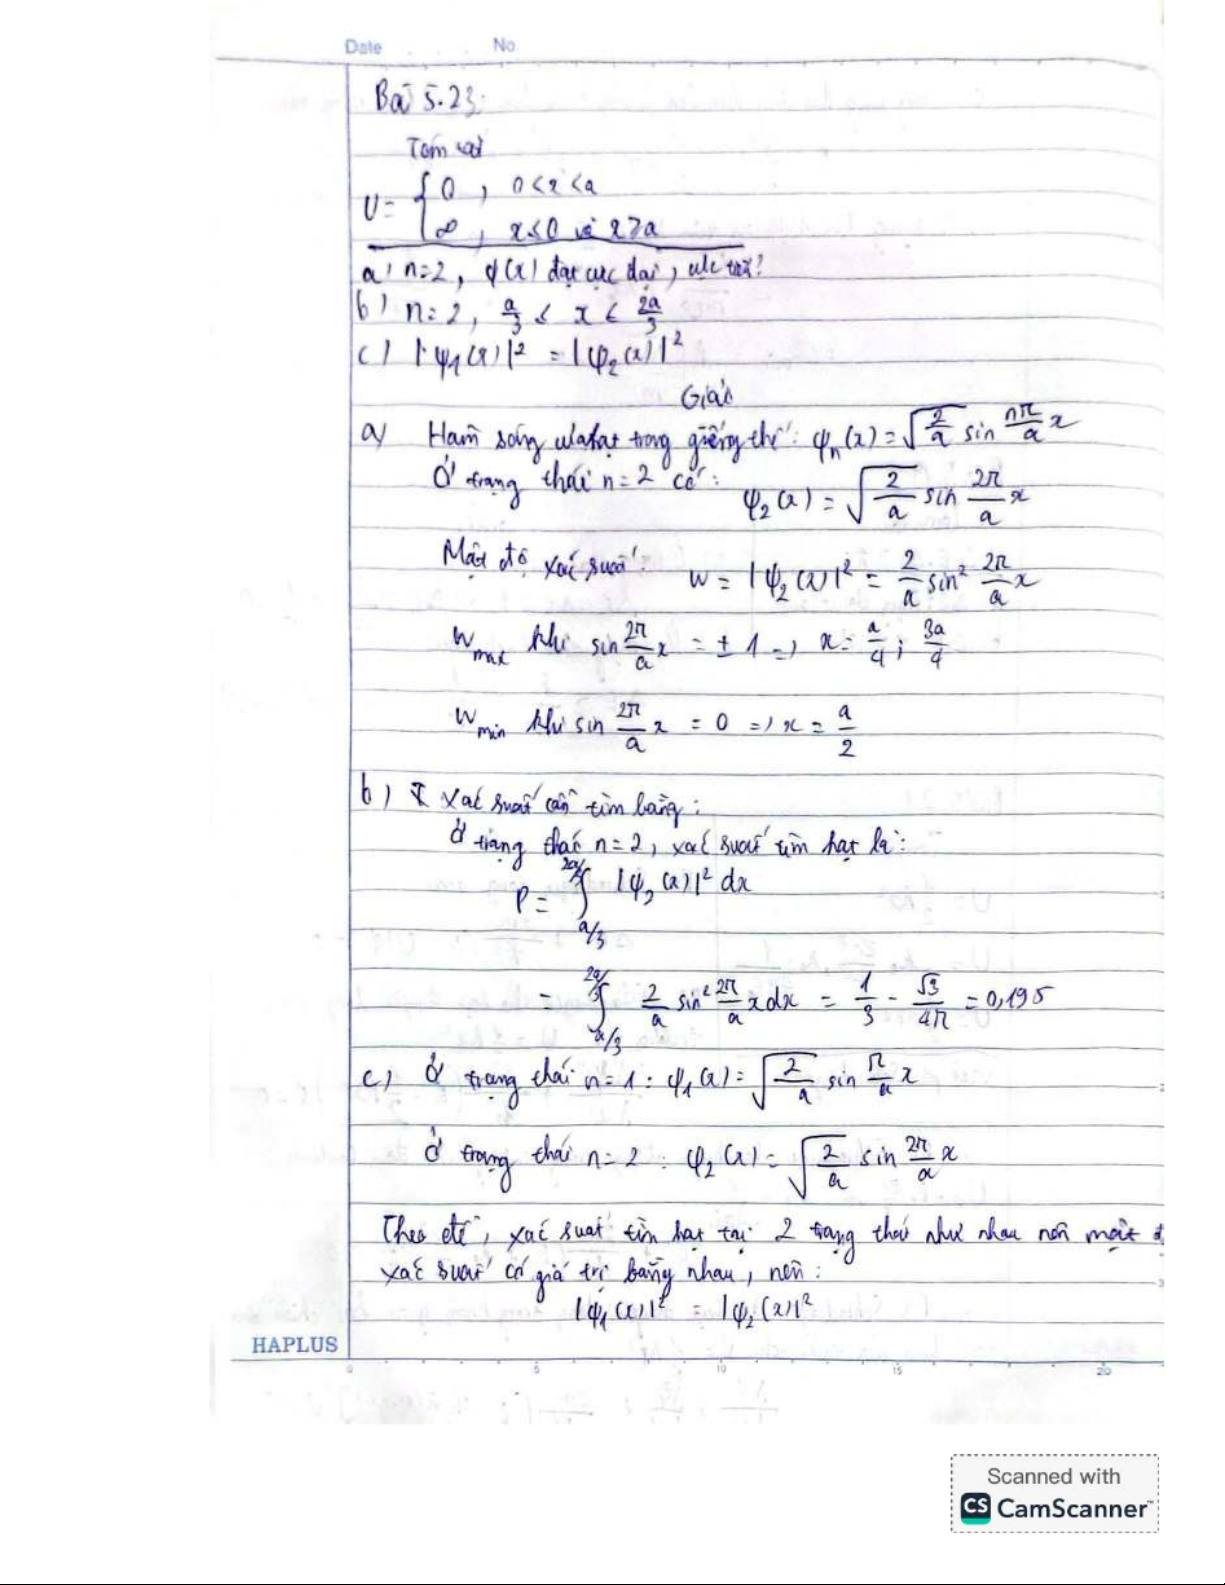 Date . . . . No
Bài 5.23:
Tóm tắt
U = { 0 , 0 < x < a
∞ , x ≤ 0 và x ≥ a
a) n=2, ψ(x) đạt cực đại, cực tiểu?
b) n=2, a/3 ≤ x < 2a/3
c) |ψ₁(x)|² = |φ₂(x)|²
Giải
a) Hàm sóng hạt trong giếng thế: ψₙ(x) = √(2/a) sin nπ/a x
Ở trạng thái n=2 có: ψ₂(x) = √(2/a) sin 2π/a x
Mật độ xác suất: W = |ψ₂(x)|² = 2/a sin² 2π/a x
W max khi sin 2π/a x = ± 1 => x = a/4 ; 3a/4
W min khi sin 2π/a x = 0 => x = a/2
b) Xác suất cần tìm bằng:
Ở trạng thái n=2, xác suất tìm hạt là:
P = ∫ a/3 2a/3 |ψ₂(x)|² dx
= ∫ a/3 2a/3 2/a sin² 2π/a x dx = 1/3 - √3/4π = 0,195
c) Ở trạng thái n=1: ψ₁(x) = √(2/a) sin π/a x
Ở trạng thái n=2: φ₂(x) = √(2/a) sin 2π/a x
Theo đề, xác suất tìm hạt tại 2 trạng thái như nhau nên mật
xác suất có giá trị bằng nhau, nên:
|ψ₁(x)|² = |ψ₂(x)|²
HAPLUS
0 5 10 15 20
Scanned with
CS CamScanner